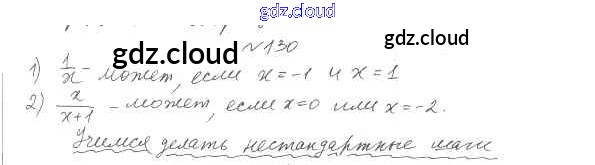 gdz.cloud
№130
gdz.cloud gdz.cloud
1) 1/x - может, если x = -1 и x = 1
2) x/(x+1) - может, если x=0 или x=-2.
Учимся делать нестандартные шаги